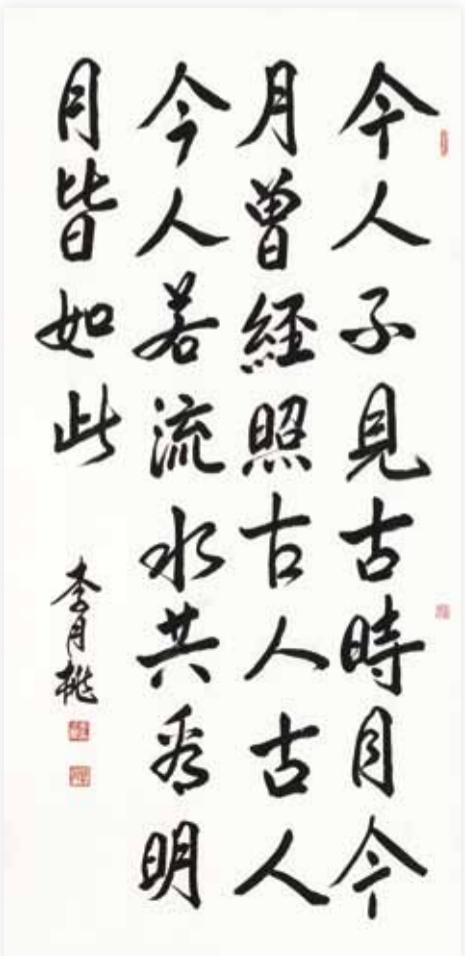 今人不見古時月今
月曾經照古人古人
今人若流水共看明
月皆如此
李月桃